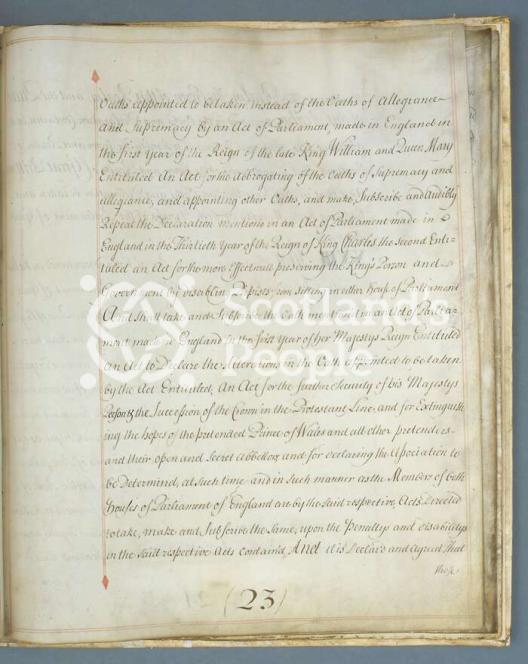 Oaths appointed to be taken instead of the Oaths of Allegiance
and Supremacy by an Act of Parliament, made in England in
the first Year of the Reign of the late King William and Queen Mary
Entituled An Act for the Abrogating of the Oaths of Supremacy and
allegiance, and appointing other Oaths, and make, Subscribe and Audibly
Repeat the Declaration mention'd in an Act of Parliament made in
England in the Thirtieth Year of the Reign of King Charles the Second Enti=
tuled an Act for the more Effectuall preserving the King's Person and
Government by disabling Papists from sitting in either house of Parliament
And shall take and Subscribe the Oath mentioned in an Act of Parlia
ment made in England in the first Year of her Majestys Reign Entituled
an Act to Declare the Alterations in the Oath appointed to be taken
by the Act Entituled, An Act for the further Security of his Majestys
Person & the Succession of the Crown in the Protestant Line and for Extinguish
ing the hopes of the pretended Prince of Wales and all other pretenders
and their open and secret abbettors and for declaring the Association to
be Determined, at such time and in such manner as the Members of both
houses of Parliament of England are by the said respective Acts Directed
to take, make and Subscribe the same, upon the Penaltys and disabilitys
in the said respective Acts contain'd, And it is Declar'd and Agreed That
those
(23)
Scotland's
People